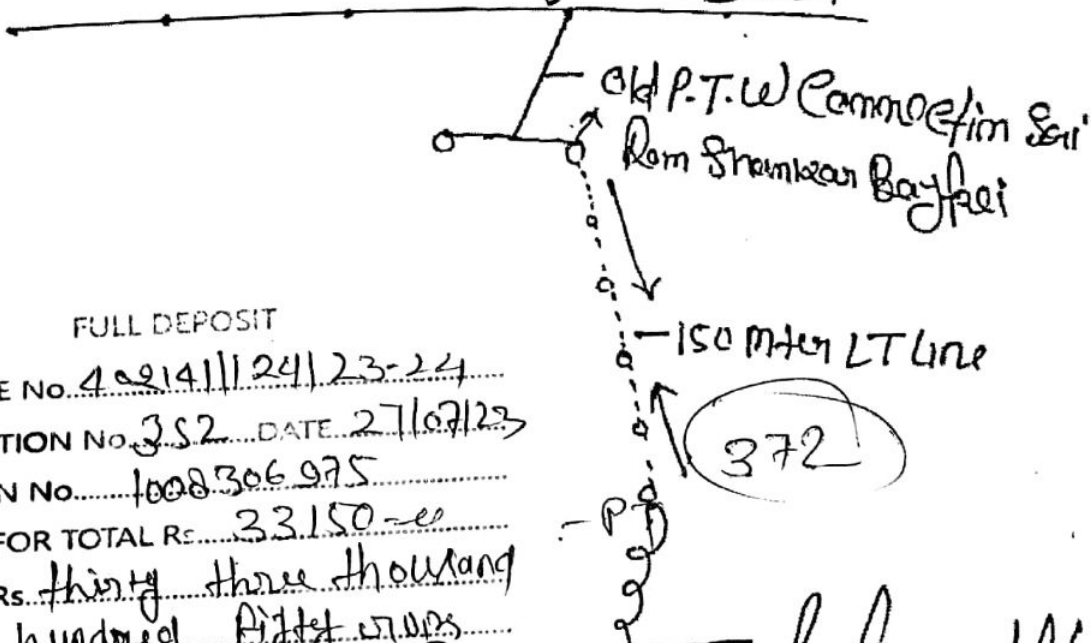 Old P.T.W Connection Sri
Ram Shankar Bajpai
150 Mter LT Line
372
FULL DEPOSIT
E No. 40214111241 23-24
TION No. 352 DATE 27/07/23
N No. 1008306975
FOR TOTAL Rs. 33150
Rs. thirty three thousand
hundred fifty